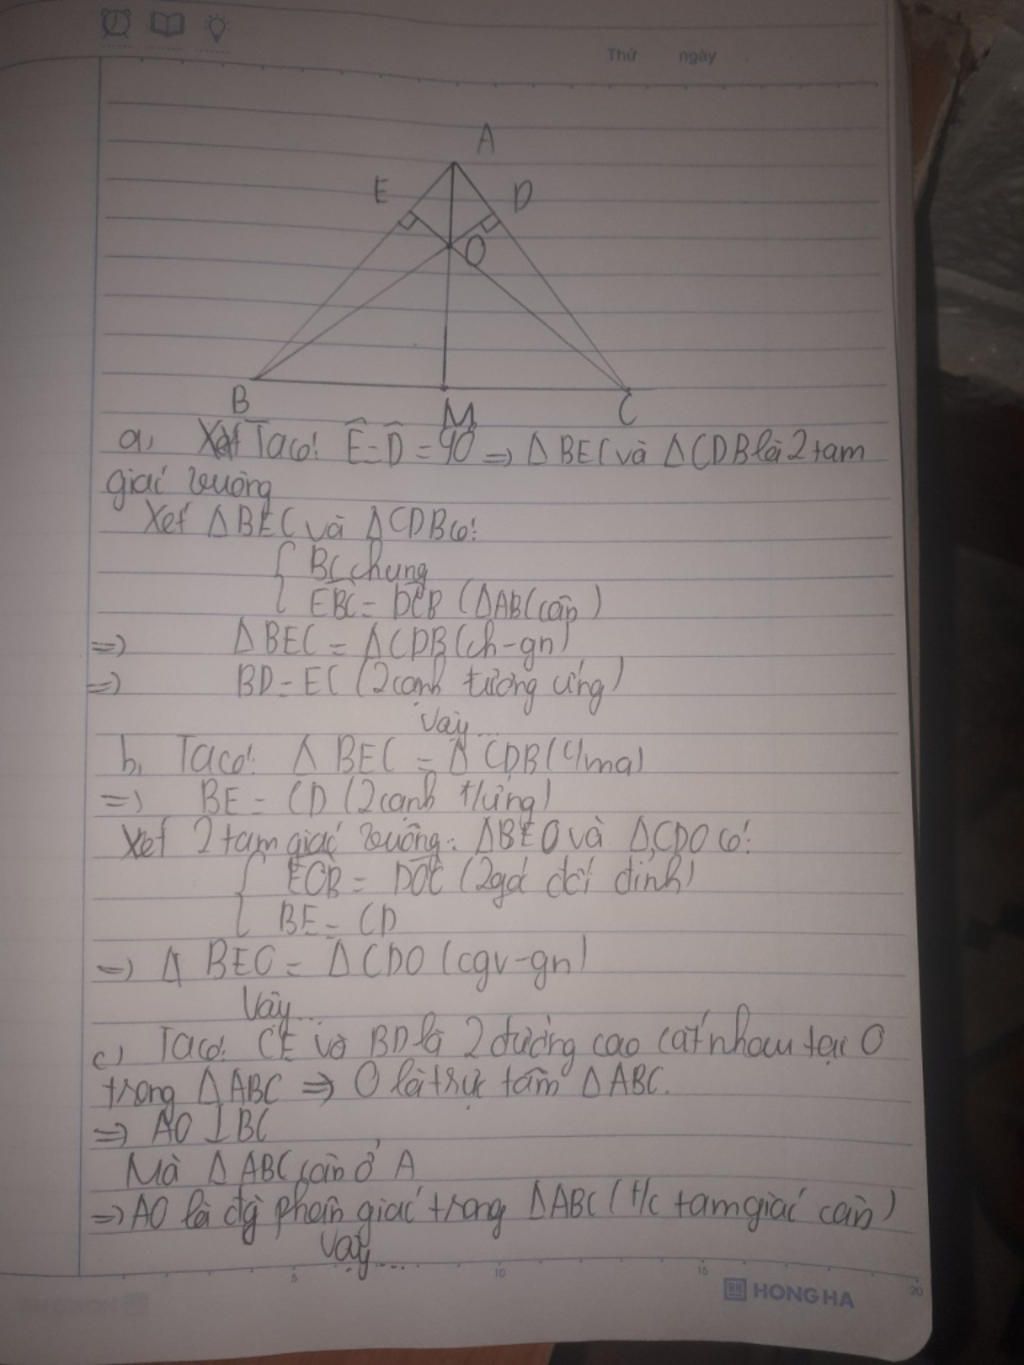 Thứ ngày
A
E D
O
B M C
a, Ta có: Ê = D̂ = 90 => Δ BEC và Δ CDB là 2 tam
giác vuông
Xét Δ BEC và Δ CDB có:
BC chung
EBC = DCB (Δ ABC cân)
=> Δ BEC = Δ CDB (ch-gn)
=> BD = EC (2 cạnh tương ứng)
Vậy...
b, Ta có: Δ BEC = Δ CDB (c/ma)
=> BE = CD (2 cạnh t/ứng)
Xét 2 tam giác vuông: Δ BEO và Δ CDO có:
EOB = DOC (2 góc đối đỉnh)
BE = CD
=> Δ BEO = Δ CDO (cgv-gn)
Vậy...
c) Ta có: CE và BD là 2 đường cao cắt nhau tại O
trong Δ ABC => O là trực tâm Δ ABC.
=> AO ⊥ BC
Mà Δ ABC cân ở A
=> AO là đg phân giác trong Δ ABC (t/c tam giác cân)
Vậy...
5 10 15 20
HONG HA